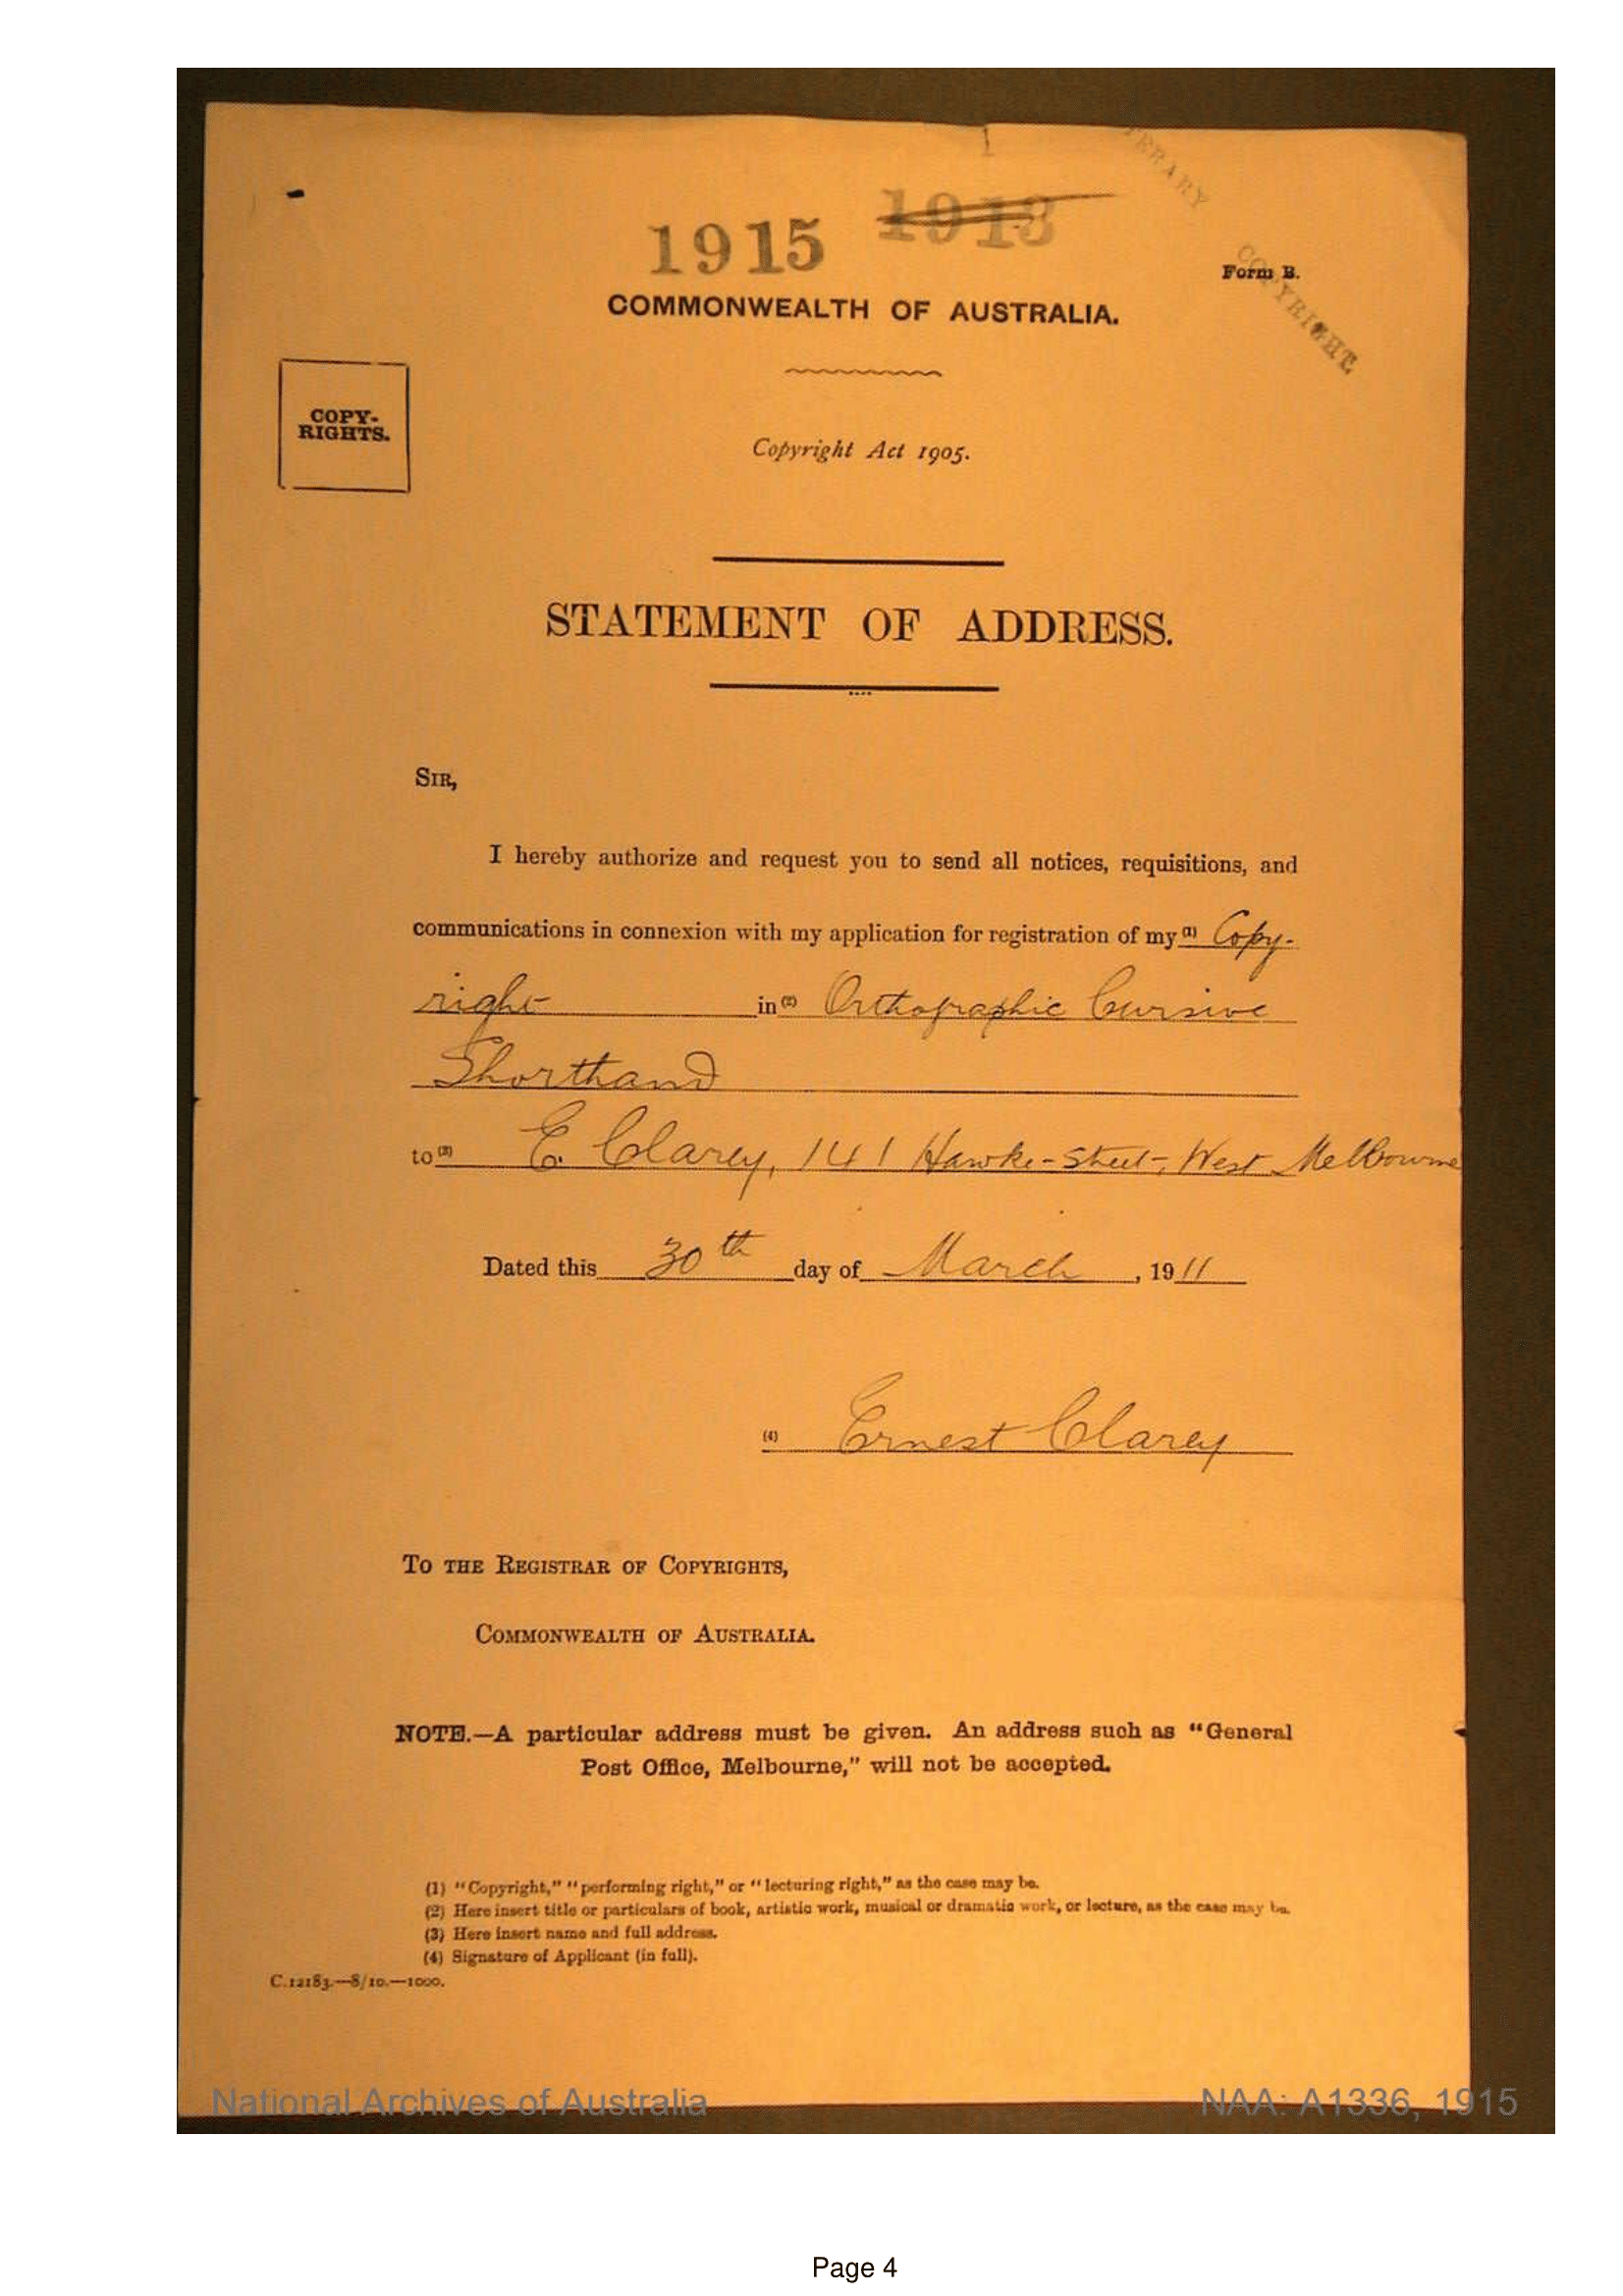 TERARY
1915 1913
COPYRIGHT
Form B.
COMMONWEALTH OF AUSTRALIA.
COPY-
RIGHTS.
Copyright Act 1905.
STATEMENT OF ADDRESS.
SIR,
I hereby authorize and request you to send all notices, requisitions, and
communications in connexion with my application for registration of my (1) Copy-
right in (2) Orthographic Cursive
Shorthand
to (3) E. Clarey, 141 Hawke-Street, West Melbourne
Dated this 30th day of March, 1911
(4) Ernest Clarey
TO THE REGISTRAR OF COPYRIGHTS,
COMMONWEALTH OF AUSTRALIA.
NOTE.—A particular address must be given. An address such as "General
Post Office, Melbourne," will not be accepted.
(1) "Copyright," "performing right," or "lecturing right," as the case may be.
(2) Here insert title or particulars of book, artistic work, musical or dramatic work, or lecture, as the case may be.
(3) Here insert name and full address.
(4) Signature of Applicant (in full).
C.12183.—8/10.—1000.
National Archives of Australia NAA: A1336, 1915
Page 4